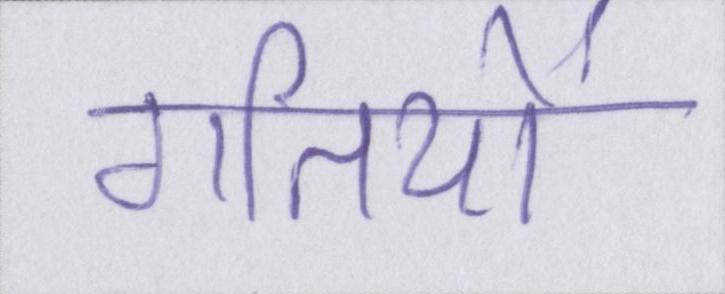 गतियों